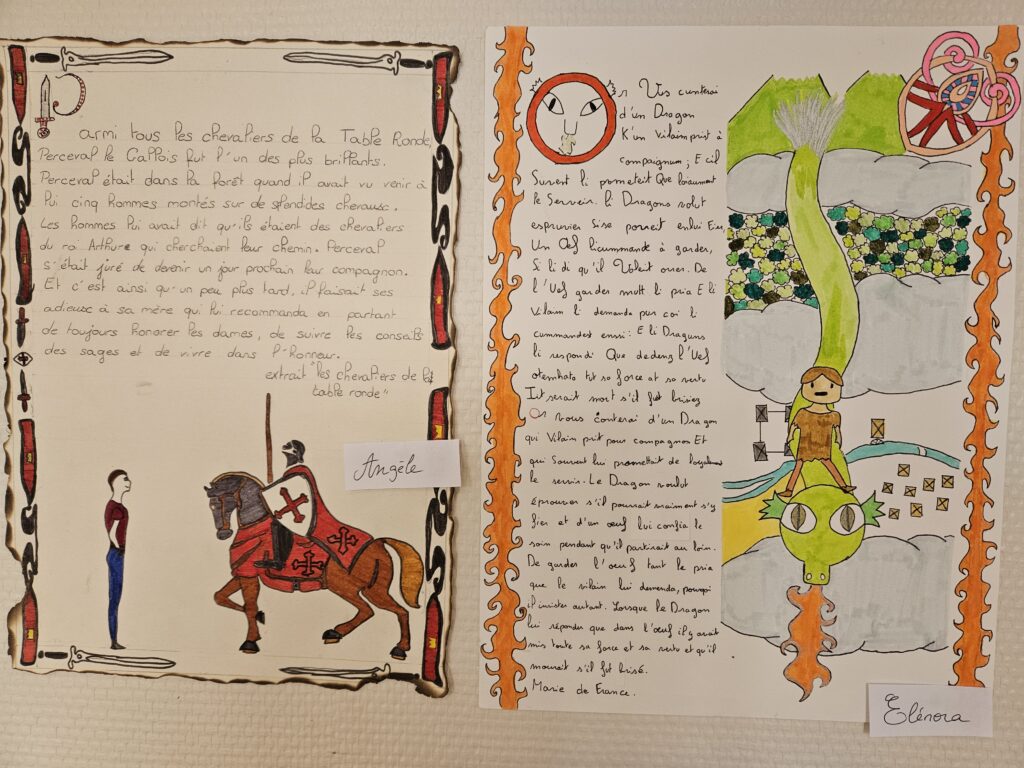 Parmi tous les chevaliers de la Table Ronde,
Perceval le Gallois fut l'un des plus brillants.
Perceval était dans la forêt quand il avait vu venir à
lui cinq hommes montés sur de splendides chevaux.
Les hommes lui avait dit qu'ils étaient des chevaliers
du roi Arthure qui cherchaient leur chemin. Perceval
s'était juré de devenir un jour prochain leur compagnon.
Et c'est ainsi qu'un peu plus tard, il faisait ses
adieux à sa mère qui lui recommanda en partant
de toujours honorer les dames, de suivre les conseils
des sages et de vivre dans l'honneur.
extrait "les chevaliers de la
table ronde"
Angèle
Or Vus cunterai
d'un Dragon
K'un Vilain prist à
compaignum; E cil
Suvent li prometeit Que loiaument
le Serveir. li Dragons volt
espruver Si se poreit en lui
Un Oef li cummande à garder,
Si li di qu'il Voleit errer. De
l'Uef garder mult li pria E li
Vilain li demanda pur coi li
cummandest enssi: E li Draguns
li respondi Que dedenz l'Uef
tut sa force et sa vertu
Tut serait mort s'il fut brisiez
Or vous conterai d'un Dragon
qui Vilain prit pour compagnon Et
qui Souvent lui promettait de loyalement
le servir. Le Dragon voulut
éprouver s'il pourrait vraiment s'y
fier et d'un œuf lui confia le
soin pendant qu'il partirait au loin.
De garder l'oeuf tant le pria
que le vilain lui demanda, pourquoi
il insister autant. Lorsque le Dragon
lui réponder que dans l'œuf il y avait
mis toute sa force et sa vertu et qu'il
mourait s'il fut brisé.
Marie de France.
Elénora